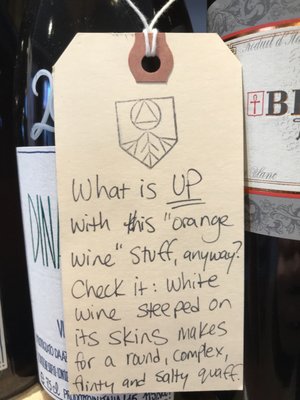 What is UP
with this "orange
wine" stuff, anyway?
Check it: White
wine steeped on
its skins makes
for a round, complex,
flinty and salty quaff.
DINA
Produit d'
B
blanc